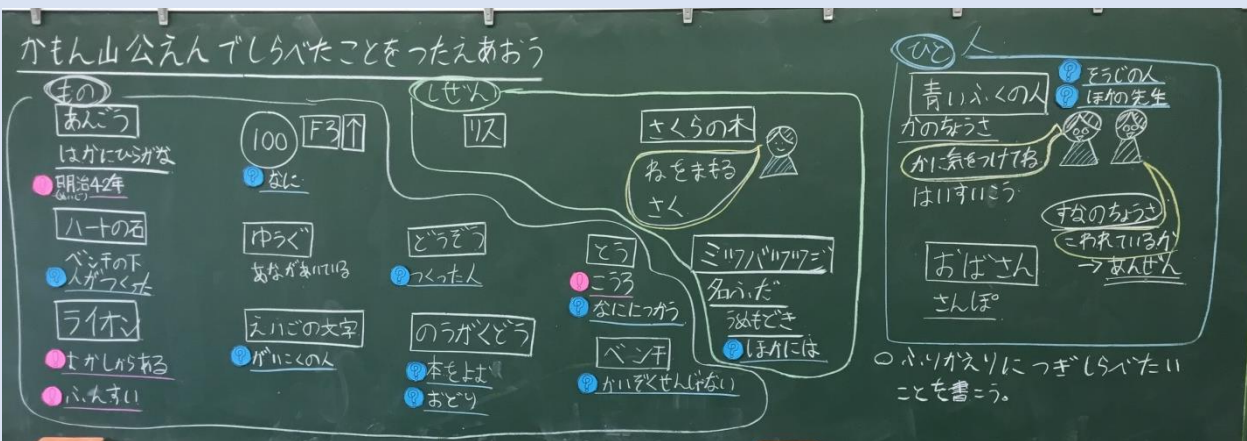 かもん山公えんでしらべたことをつたえあおう
もの
あんごう
はかにひらがな
! 明治42年
(めいじ)
ハートの石
ベンチの下
? 人がつくった
ライオン
! むかしからある
! ふんすい
100
F3
↑
? なに
ゆうぐ
あながあいている
えいごの文字
? がいこくの人
どうぞう
? つくった人
のうがくどう
? 本をよむ
? おどり
とう
! こうろ
? なににつかう
ベンチ
? かいぞくせんじゃない
しぜん
リス
さくらの木
ねをまもる
さく
ミツバツツジ
名ふだ
うめもどき
? ほかには
ひと 人
青いふくの人
? そうじの人
? ほかの先生
かのちょうさ
かに気をつけてね
はいすいこう
すなのちょうさ
こわれているか
→ あんぜん
おばさん
さんぽ
○ふりかえりにつぎしらべたい
ことを書こう。